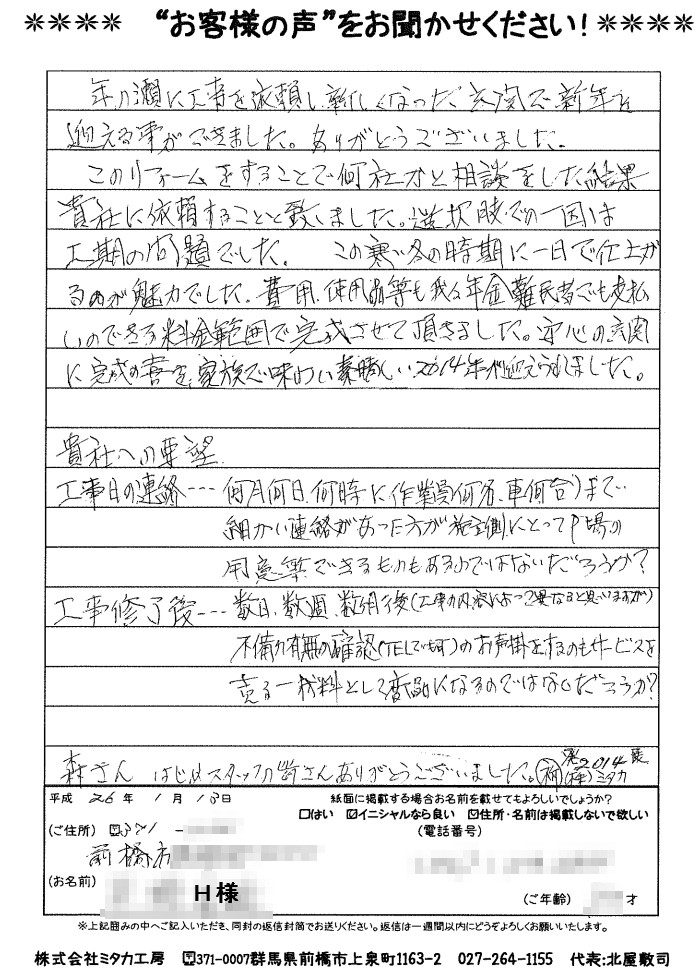 “お客様の声”をお聞かせください!
年の瀬に工事を依頼し新しくなった玄関で新年を
迎える事ができました。ありがとうございました。
このリフォームをすることで何社かと相談をした結果
貴社に依頼することと致しました。選択肢での一因は
工期の問題でした。 この寒い冬の時期に一日で仕上が
るのが魅力でした。費用、使用品等も我々年金難民者でも支払
いのできる料金範囲で完成させて頂きました。安心の玄関
に完成の喜を、家族で味わい素晴しい2014年が迎えられました。
貴社への要望
工事日の連絡--- 何月何日、何時に(作業員何名、車何台)まで
細かい連絡があった方が施主側にとってP場の
用意等できるものもあるのではないだろうか?
工事修了後--- 数日、数週、数月後(工事の内容によって異なると思いますが)
不備の有無の確認(TELで可)のお声掛をするのもサービスを
売る一材料として商品になるのではないだろうか?
森さん はじめスタッフの皆さんありがとうございました。
2014
ミタカ
平成 26年 1月 13日
紙面に掲載する場合お名前を載せてもよろしいでしょうか?
はい イニシャルなら良い 住所・名前は掲載しないで欲しい
(ご住所) 〒371 -
(電話番号)
前橋市
(お名前)
H様
(ご年齢) 才
※上記囲みの中へご記入いただき、同封の返信封筒でお送りください。返信は一週間以内にどうぞよろしくお願いいたします。
株式会社ミタカ工房 〒371-0007群馬県前橋市上泉町1163-2 027-264-1155 代表:北屋敷司